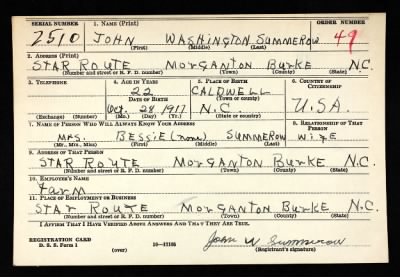 SERIAL NUMBER 1. NAME (Print) ORDER NUMBER
2510 JOHN WASHINGTON SUMMEROW 49
(First) (Middle) (Last)
2. ADDRESS (Print)
STAR ROUTE MORGANTON BURKE N.C.
(Number and street or R. F. D. number) (Town) (County) (State)
3. TELEPHONE 4. AGE IN YEARS 5. PLACE OF BIRTH 6. COUNTRY OF CITIZENSHIP
22 CALDWELL
DATE OF BIRTH (Town or county)
Oct. 28 1917 N.C. U.S.A.
(Exchange) (Number) (Mo.) (Day) (Yr.) (State or country)
7. NAME OF PERSON WHO WILL ALWAYS KNOW YOUR ADDRESS 8. RELATIONSHIP OF THAT PERSON
MRS. BESSIE (none) SUMMEROW WIFE
(Mr., Mrs., Miss) (First) (Middle) (Last)
9. ADDRESS OF THAT PERSON
STAR ROUTE MORGANTON BURKE N.C.
(Number and street or R. F. D. number) (Town) (County) (State)
10. EMPLOYER'S NAME
Farm
11. PLACE OF EMPLOYMENT OR BUSINESS
STAR ROUTE MORGANTON BURKE N.C.
(Number and street or R. F. D. number) (Town) (County) (State)
I AFFIRM THAT I HAVE VERIFIED ABOVE ANSWERS AND THAT THEY ARE TRUE.
REGISTRATION CARD John W Summerow
D. S. S. Form 1 (over) 16—17105 (Registrant's signature)